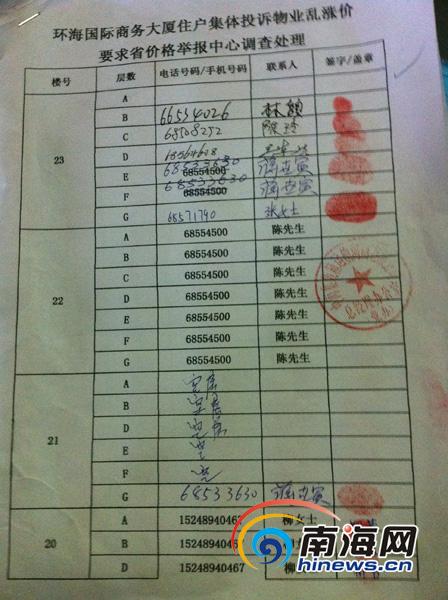 环海国际商务大厦住户集体投诉物业乱涨价
要求省价格举报中心调查处理
楼号 层数 电话号码/手机号码 联系人 签字/盖章
A
B 66534026 林
C 68508252
D
23 E 68533630 68554500
F 68533630 68554500
G 68571790 张女士
A 68554500 陈先生
B 68554500 陈先生
C 68554500 陈先生
22 D 68554500 陈先生
E 68554500 陈先生
F 68554500 陈先生
G 68554500 陈先生
A 空房
B 空房
21 D 空房
E 空
F 空
G 68533630
A 15248940467 柳女士
20 B 15248940467
D 15248940467
南海网
hinews.cn